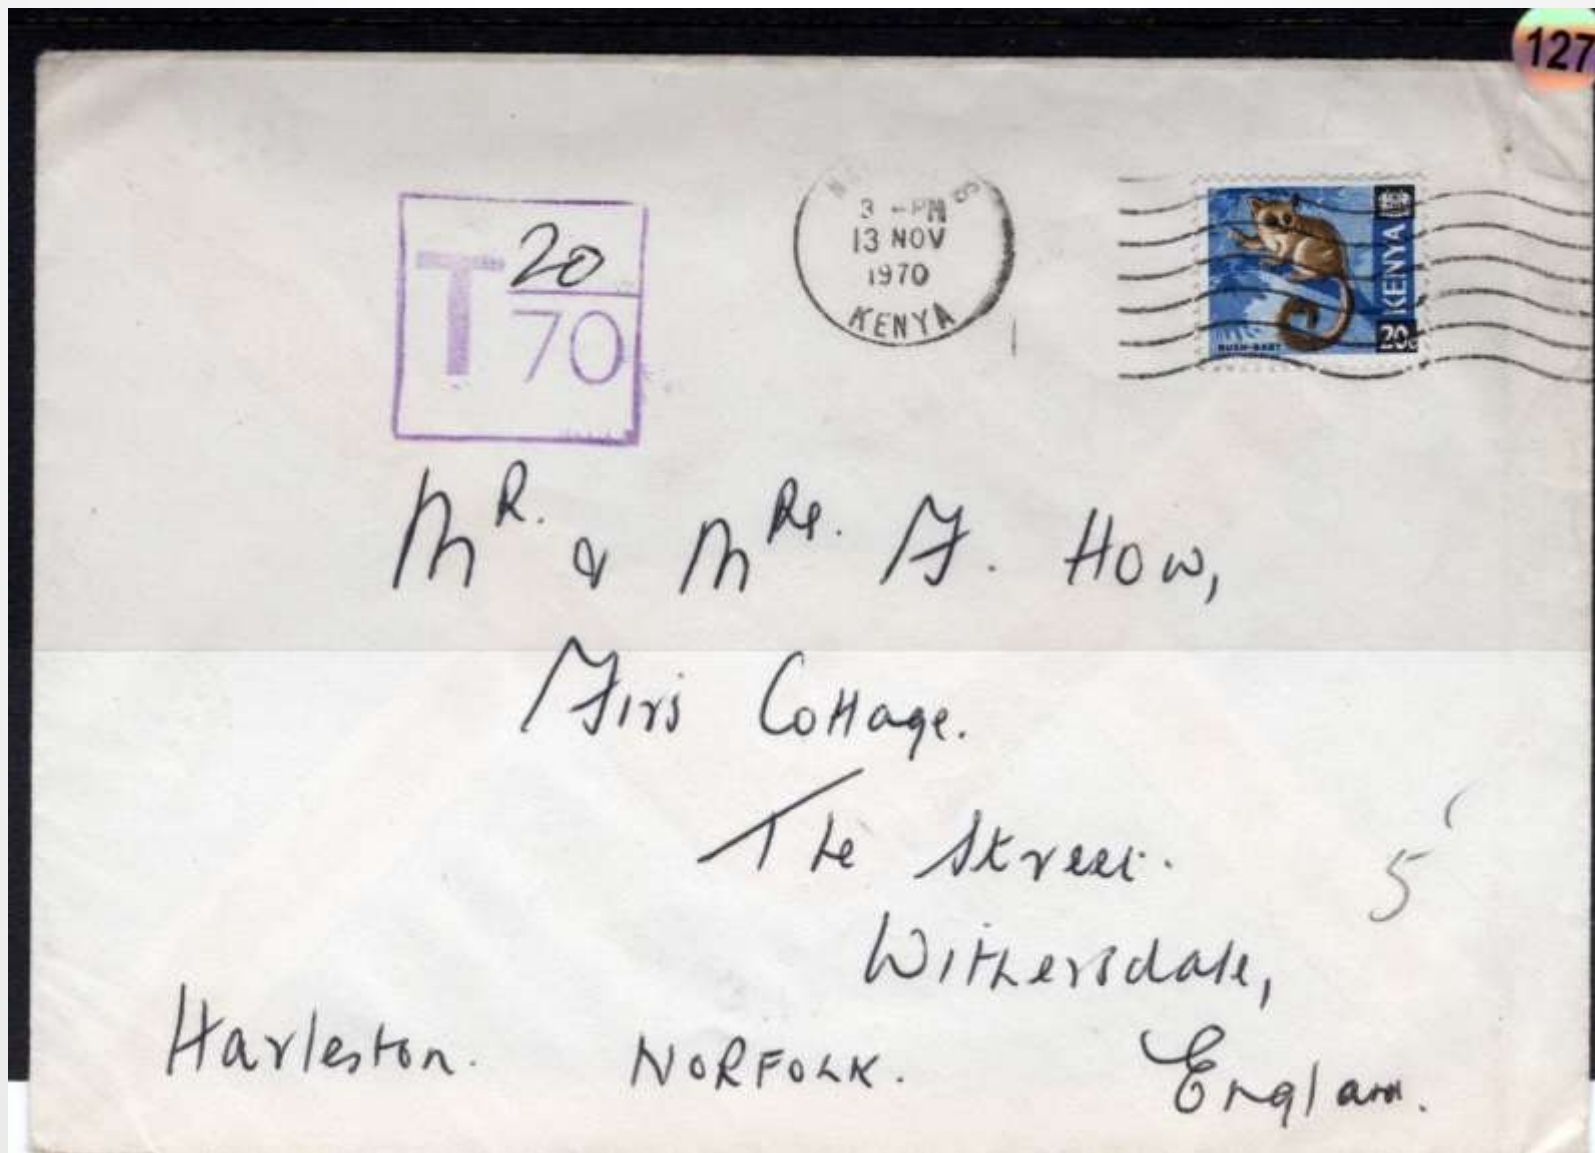 127
3 - PM
13 NOV
1970
KENYA
KENYA
20c
BUSH-BABY
T 20
70
MR. & MRS. F. HOW,
Firs Cottage.
The Street.
Withersdale,
5
Harleston. NORFOLK. England.